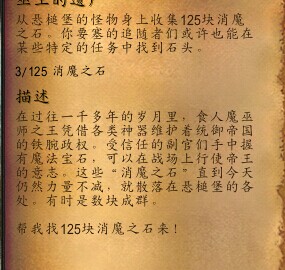 从悬槌堡的怪物身上收集125块消魔
之石。你要塞的追随者们或许也能在
某些特定的任务中找到石头。
3/125 消魔之石
描述
在过往一千多年的岁月里，食人魔巫
师之王凭借各类神器维护着统御帝国
的铁腕政权。受信任的副官们手中握
有魔法宝石，可以在战场上行使帝王
的意志。这些“消魔之石”直到今天
仍然力量不减，就散落在悬槌堡的各
处。有时是数块成群。
帮我找125块消魔之石来！